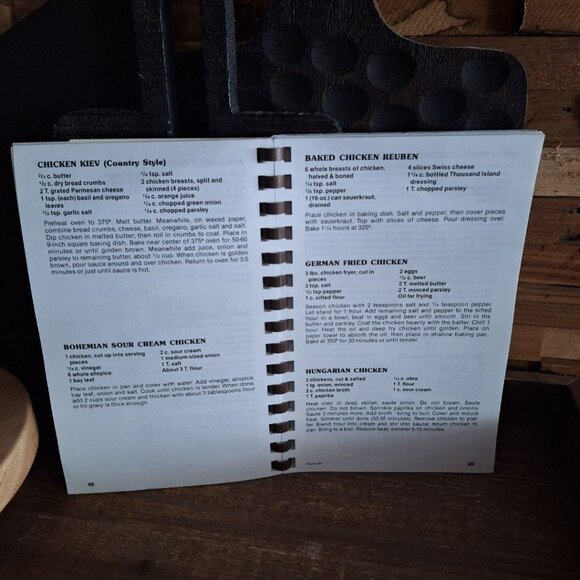 CHICKEN KIEV (Country Style)
2/3 c. butter
1/2 c. dry bread crumbs
2 T. grated Parmesan cheese
1 tsp. (each) basil and oregano
leaves
1/2 tsp. garlic salt
1/4 tsp. salt
2 chicken breasts, split and
skinned (4 pieces)
1/4 c. orange juice
1/4 c. chopped green onion
1/4 c. chopped parsley
Preheat oven to 375°. Melt butter. Meanwhile, on waxed paper,
combine bread crumbs, cheese, basil, oregano, garlic salt and salt.
Dip chicken in melted butter; then roll in crumbs to coat. Place in
9-inch square baking dish. Bake near center of 375° oven for 50-60
minutes or until golden brown. Meanwhile add juice, onion and
parsley to remaining butter, about 1/2 cup. When chicken is golden
brown, pour sauce around and over chicken. Return to oven for 3-5
minutes or just until sauce is hot.
BOHEMIAN SOUR CREAM CHICKEN
1 chicken, cut up into serving
pieces
1/4 c. vinegar
6 whole allspice
1 bay leaf
2 c. sour cream
1 medium-sized onion
1 T. salt
About 3 T. flour
Place chicken in pan and cover with water. Add vinegar, allspice,
bay leaf, onion and salt. Cook until chicken is tender. When done,
add 2 cups sour cream and thicken with about 3 tablespoons flour
or til gravy is thick enough.
48
BAKED CHICKEN REUBEN
6 whole breasts of chicken,
halved & boned
1/4 tsp. salt
1/8 tsp. pepper
1 (16-oz.) can sauerkraut,
drained
4 slices Swiss cheese
1 1/4 c. bottled Thousand Island
dressing
1 T. chopped parsley
Place chicken in baking dish. Salt and pepper, then cover pieces
with sauerkraut. Top with slices of cheese. Pour dressing over.
Bake 1 1/4 hours at 325°.
GERMAN FRIED CHICKEN
3 lbs. chicken fryer, cut in
pieces
3 tsp. salt
1/2 tsp pepper
1 c. sifted flour
2 eggs
1/2 c. beer
2 T. melted butter
2 T. minced parsley
Oil for frying
Season chicken with 2 teaspoons salt and 1/4 teaspoon pepper.
Let stand for 1 hour. Add remaining salt and pepper to the sifted
flour in a bowl; beat in eggs and beer until smooth. Stir in the
butter and parsley. Coat the chicken heavily with the batter. Chill 1
hour. Heat the oil and deep fry chicken until golden. Place on
paper towel to absorb the oil, then place in shallow baking pan.
Bake at 350° for 30 minutes or until tender.
HUNGARIAN CHICKEN
2 chickens, cut & salted
1 lg. onion, minced
2 c. chicken broth
1 T. paprika
1/3 c. oleo
1 T. flour
1 c. sour cream
Heat oleo in deep skillet, saute onion. Do not brown. Saute
chicken. Do not brown. Sprinkle paprika on chicken and onions.
Saute 3 minutes more. Add broth - bring to boil. Cover and reduce
heat. Simmer until done (30-35 minutes). Remove chicken to plat-
ter. Blend flour into cream and stir into sauce; return chicken to
pan. Bring to a boil. Reduce heat; simmer 5-10 minutes.